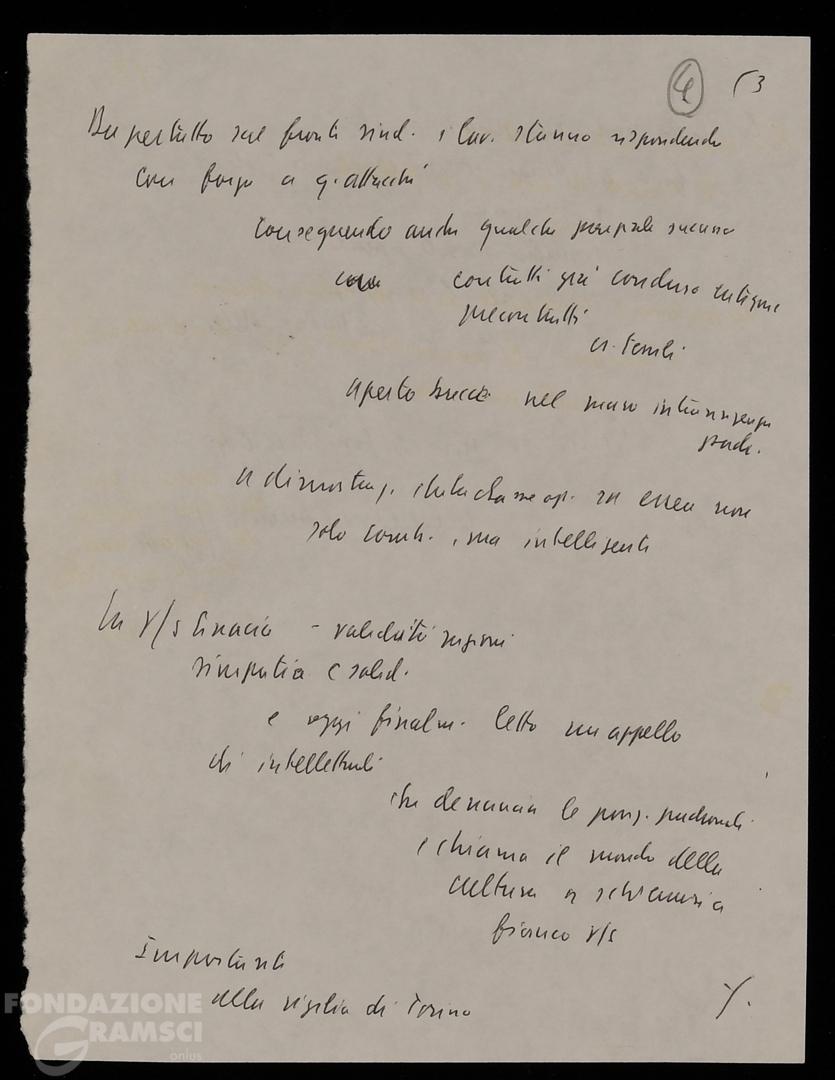 4 53
Da pertutto sul fronti sind. i lav. stanno rispondendo
con forza a q. attacchi
conseguendo anche qualche parziale successo
contratti già
precontratti
a. tessili
aperto breccia nel muro intransigenza
padr.
a dimostraz. che la classe op. sa essere non
solo comb., ma intelligente
La v/s tenacia - validità ragioni
simpatia e solid.
e oggi finalm. letto un appello
di intellettuali
che denuncia le posiz. padronali
e chiama il mondo della
cultura a schierarsi a
fianco v/s
Importante
alla vigilia di Torino
FONDAZIONE
GRAMSCI
onlus